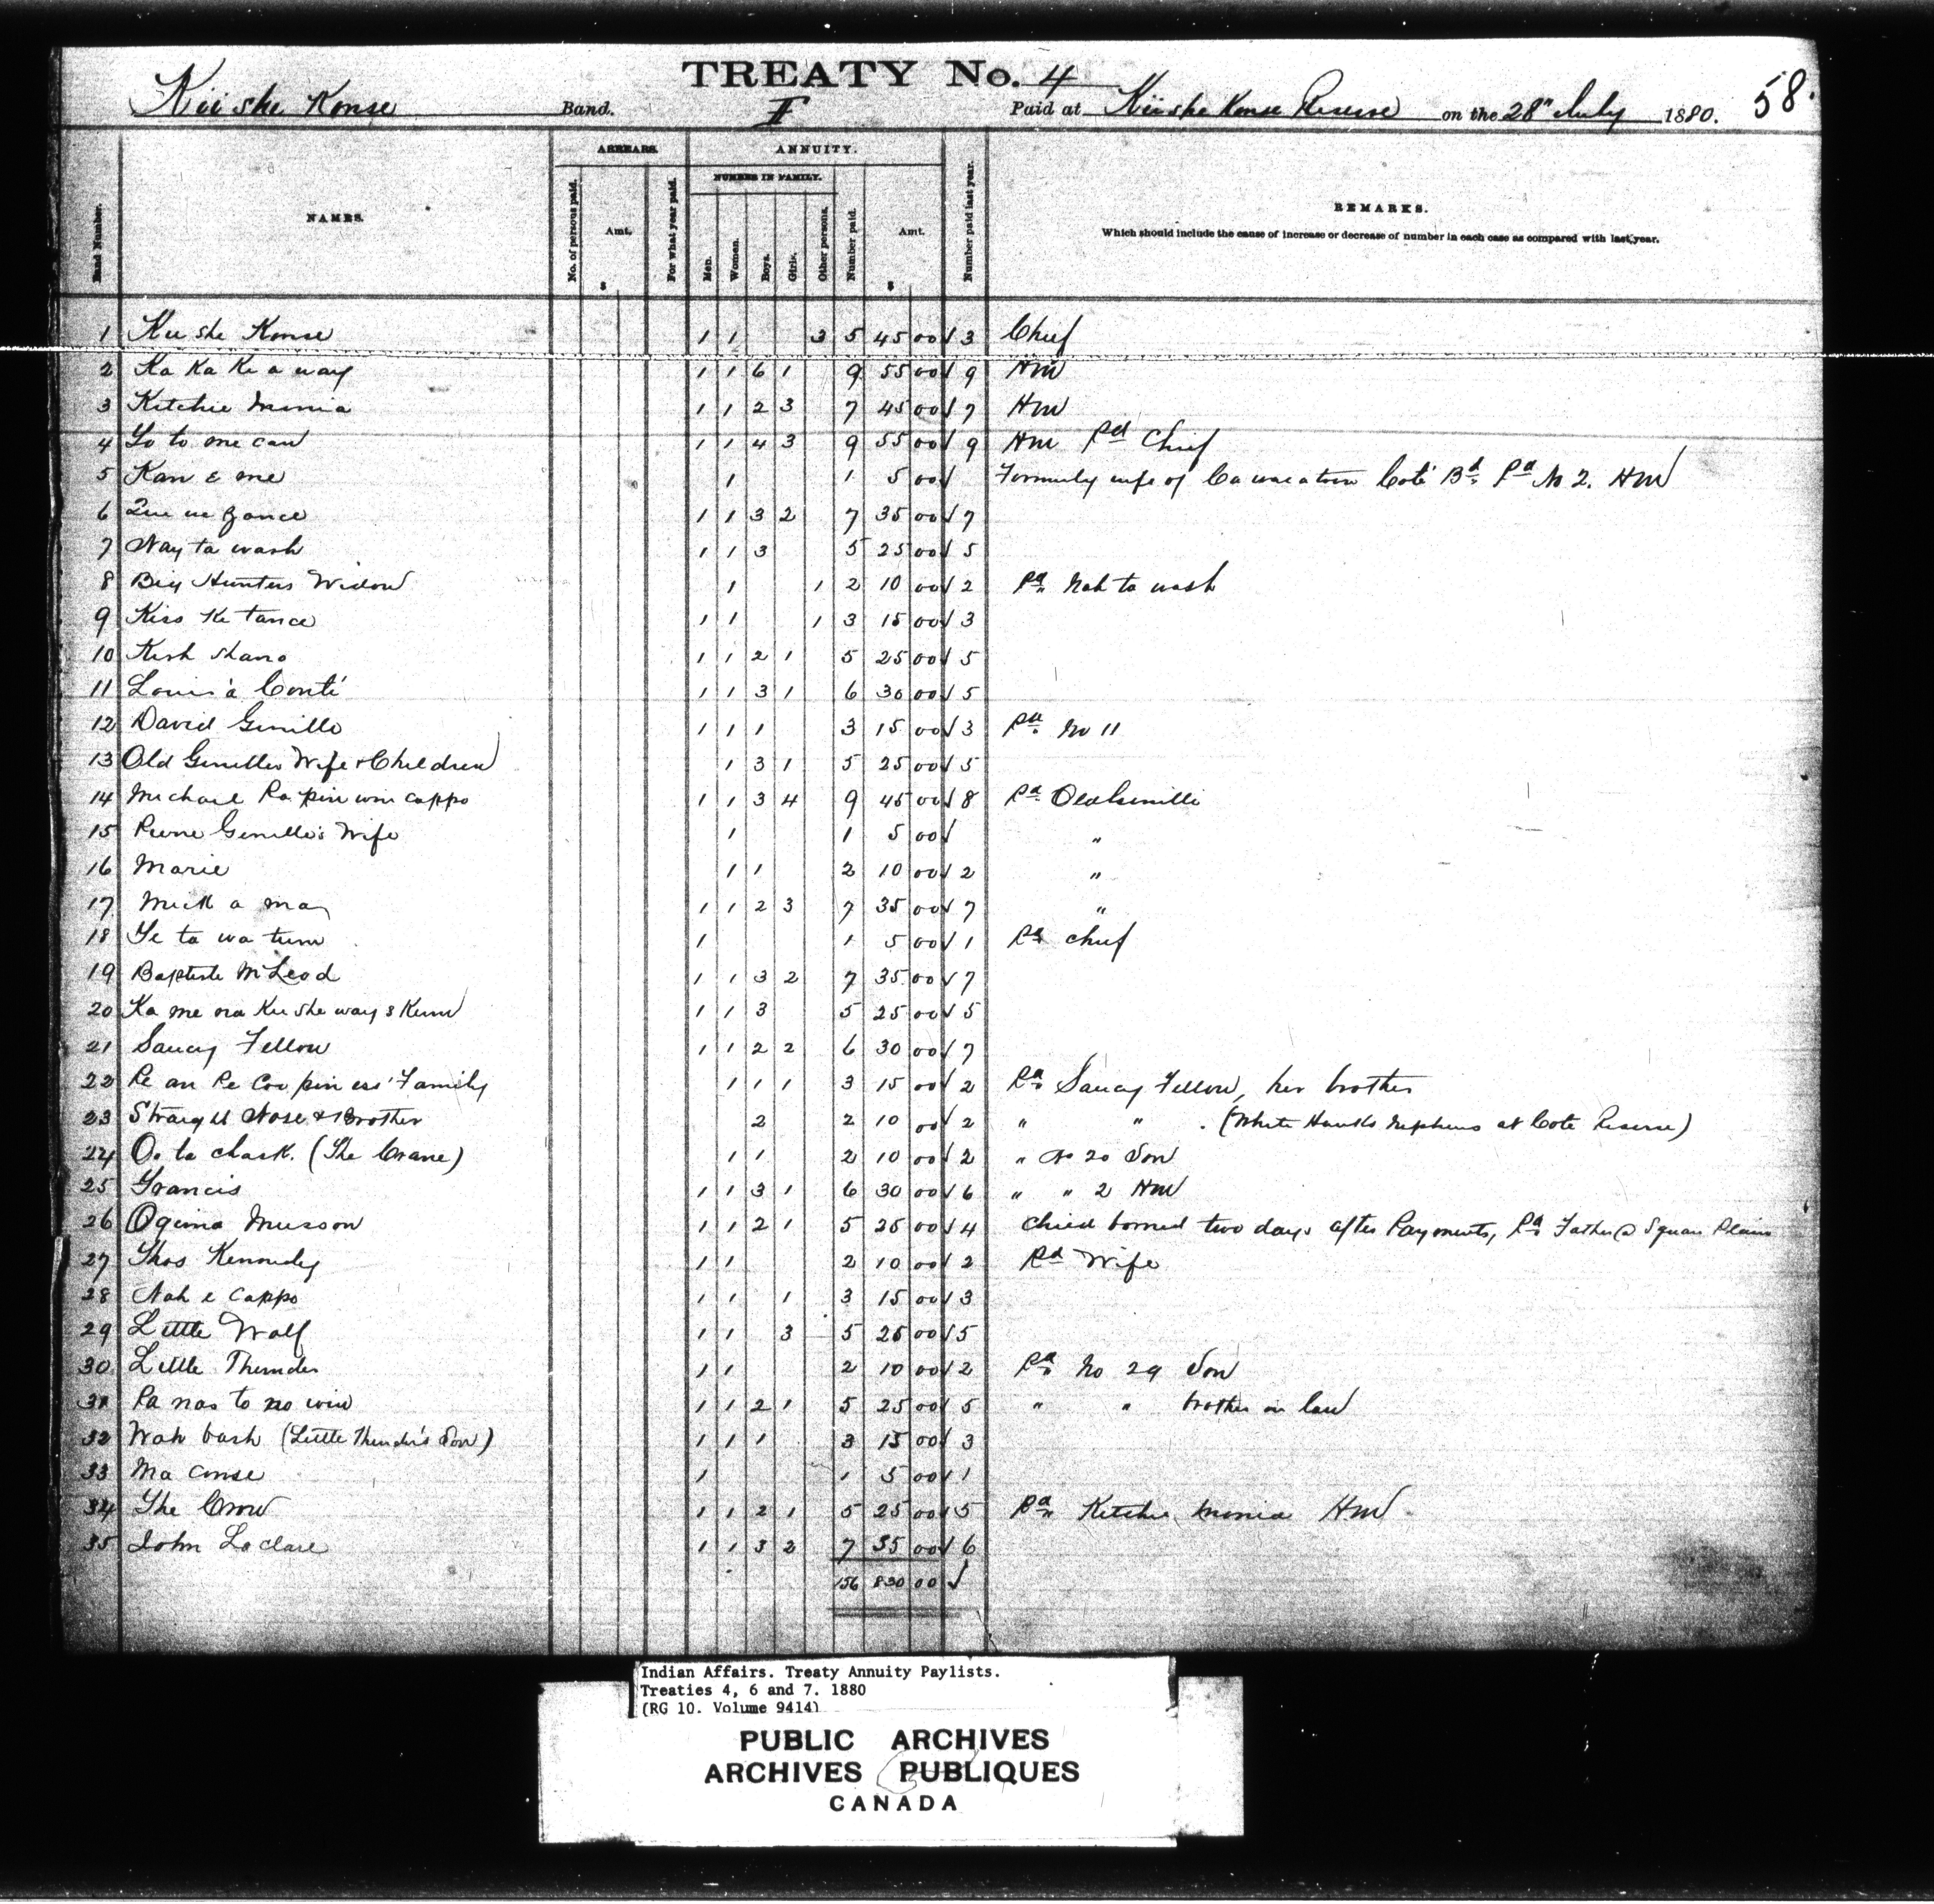 TREATY No. 4
58.
Kii she Konse Band. F Paid at Kii she Konse Reserve on the 28th July 1880.
ARREARS. ANNUITY.
NUMBER IN FAMILY.
Band Number. NAMES. No. of persons paid. Amt. For what year paid. Men. Women. Boys. Girls. Other persons. Number paid. Amt. Number paid last year. REMARKS.
Which should include the cause of increase or decrease of number in each case as compared with last year.
$ $
1 Kii she Konse 1 1 3 5 45 00 √ 3 Chief
2 Ka Ka Ke a way 1 1 6 1 9 55 00 √ 9 HM
3 Kitchie monia 1 1 2 3 7 45 00 √ 7 HM
4 Yo to me can 1 1 4 3 9 55 00 √ 9 HM Pd Chief
5 Kan e me 1 1 5 00 √ Formerly wife of Coté Bd. Pd No 2. HM
6 1 1 3 2 7 35 00 √ 7
7 Nay ta wash 1 1 3 5 25 00 √ 5
8 Big Hunters Widow 1 1 2 10 00 √ 2 Pd. Nah ta wash
9 Kiss Ke tance 1 1 1 3 15 00 √ 3
10 Kish shano 1 1 2 1 5 25 00 √ 5
11 Louis á Conté 1 1 3 1 6 30 00 √ 5
12 David Genille 1 1 1 3 15 00 √ 3 Pd. No 11
13 Old Genilles Wife & Children 1 3 1 5 25 00 √ 5
14 Michael Pa pin win cappo 1 1 3 4 9 45 00 √ 8 Pd. Old Genille
15 Pierre Genille's Wife 1 1 5 00 √ "
16 Marie 1 1 2 10 00 √ 2 "
17 Mick a may 1 1 2 3 7 35 00 √ 7 "
18 Ye ta wa tum 1 1 5 00 √ 1 Pd. chief
19 Baptiste McLeod 1 1 3 2 7 35 00 √ 7
20 Ka me na Kee she way s Kum 1 1 3 5 25 00 √ 5
21 Saucy Fellow 1 1 2 2 6 30 00 √ 7
22 Pe an Pe Coo pin ess' Family 1 1 1 3 15 00 √ 2 Pd. Saucy Fellow, her brother
23 Straight Nose & Brother 2 2 10 00 √ 2 " " (White Hawks nephews at Cote Reserve)
24 O. ta chask. (The Crane) 1 1 2 10 00 √ 2 " No 20 Son
25 Francis 1 1 3 1 6 30 00 √ 6 " " 2 HM
26 Ogima Musson 1 1 2 1 5 25 00 √ 4 Child borned two days after Payments, Pd. Father @ Squan Plain
27 Thos Kennedy 1 1 2 10 00 √ 2 Pd Wife
28 Nah e cappo 1 1 1 3 15 00 √ 3
29 Little Wolf 1 1 3 5 25 00 √ 5
30 Little Thunder 1 1 2 10 00 √ 2 Pd. No 29 Son
31 Pa nas to no win 1 1 2 1 5 25 00 √ 5 " " brother in law
32 Wah bash (Little Thunder's Son) 1 1 1 3 15 00 √ 3
33 Ma conse 1 1 5 00 √ 1
34 The Crow 1 1 2 1 5 25 00 √ 5 Pd. Kitchie monia HM
35 John Leclare 1 1 3 2 7 35 00 √ 6
156 830 00 √
Indian Affairs. Treaty Annuity Paylists.
Treaties 4, 6 and 7. 1880
(RG 10. Volume 9414)
PUBLIC ARCHIVES
ARCHIVES PUBLIQUES
CANADA